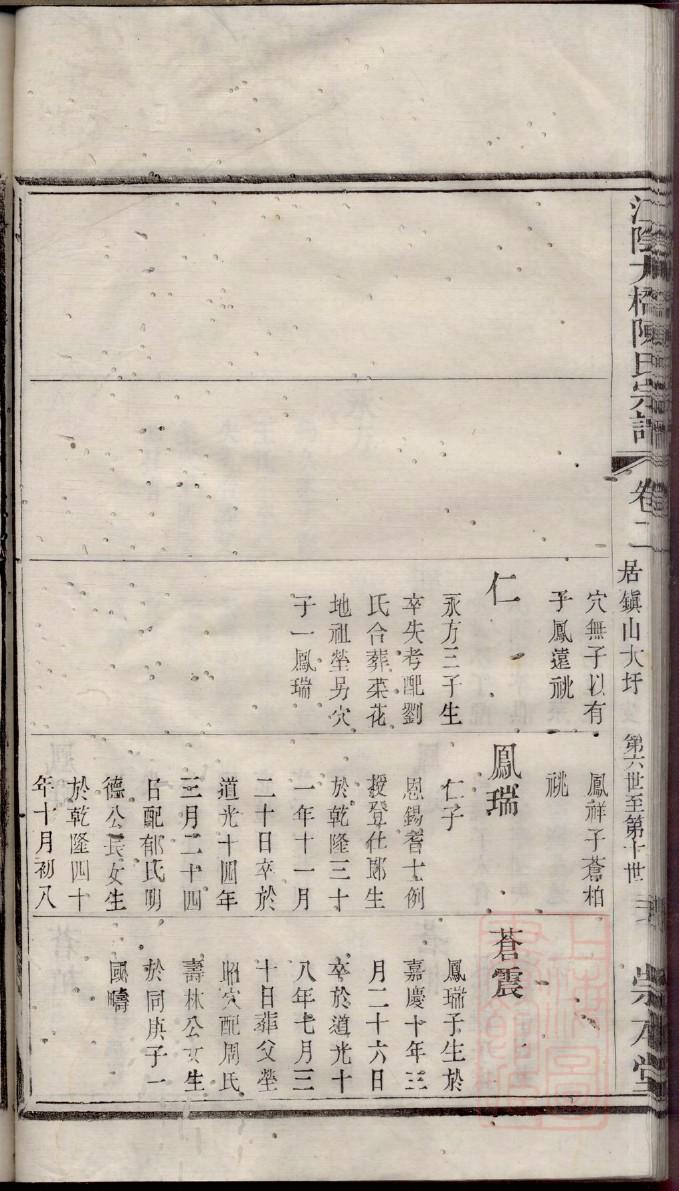 江陰大橋陳氏宗譜
卷二
居鎮山大圩
第六世至第十世
崇本堂
穴無子以有
子鳳遠祧
仁
永方三子生
卒失考配劉
氏合葬菜花
地祖塋另穴
子一鳳瑞
鳳祥子蒼柏
祧
鳳瑞
仁子
恩錫耆士例
授登仕郎生
於乾隆三十
一年十一月
二十日卒於
道光十四年
三月二十四
日配郁氏明
德公長女生
於乾隆四十
年十月初八
蒼震
鳳瑞子生於
嘉慶十年三
月二十六日
卒於道光十
八年七月三
十日葬父塋
昭穴配周氏
壽林公女生
於同庚子一
國疇